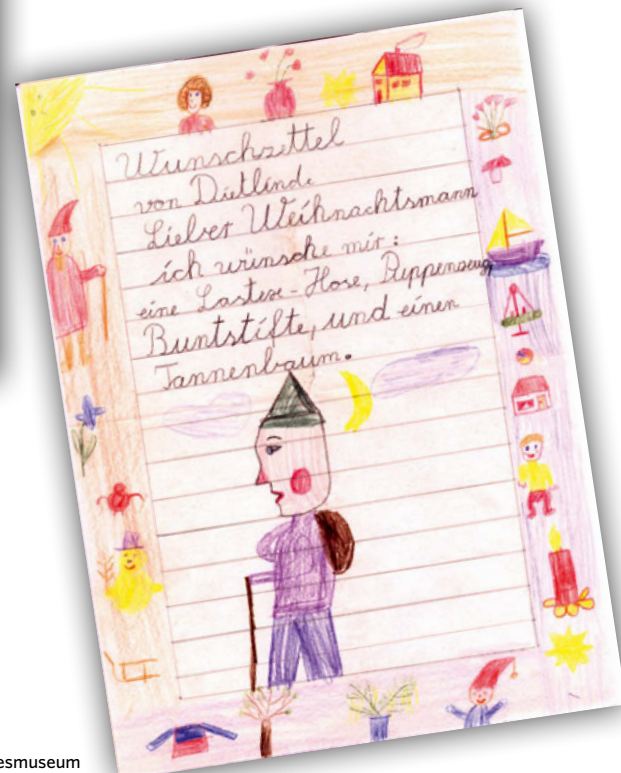 Wunschzettel
von Dietlinde
Lieber Weihnachtsmann
ich wünsche mir:
eine Lastexe-Hose, Puppenzeug,
Buntstifte, und einen
Tannenbaum.
esmuseum